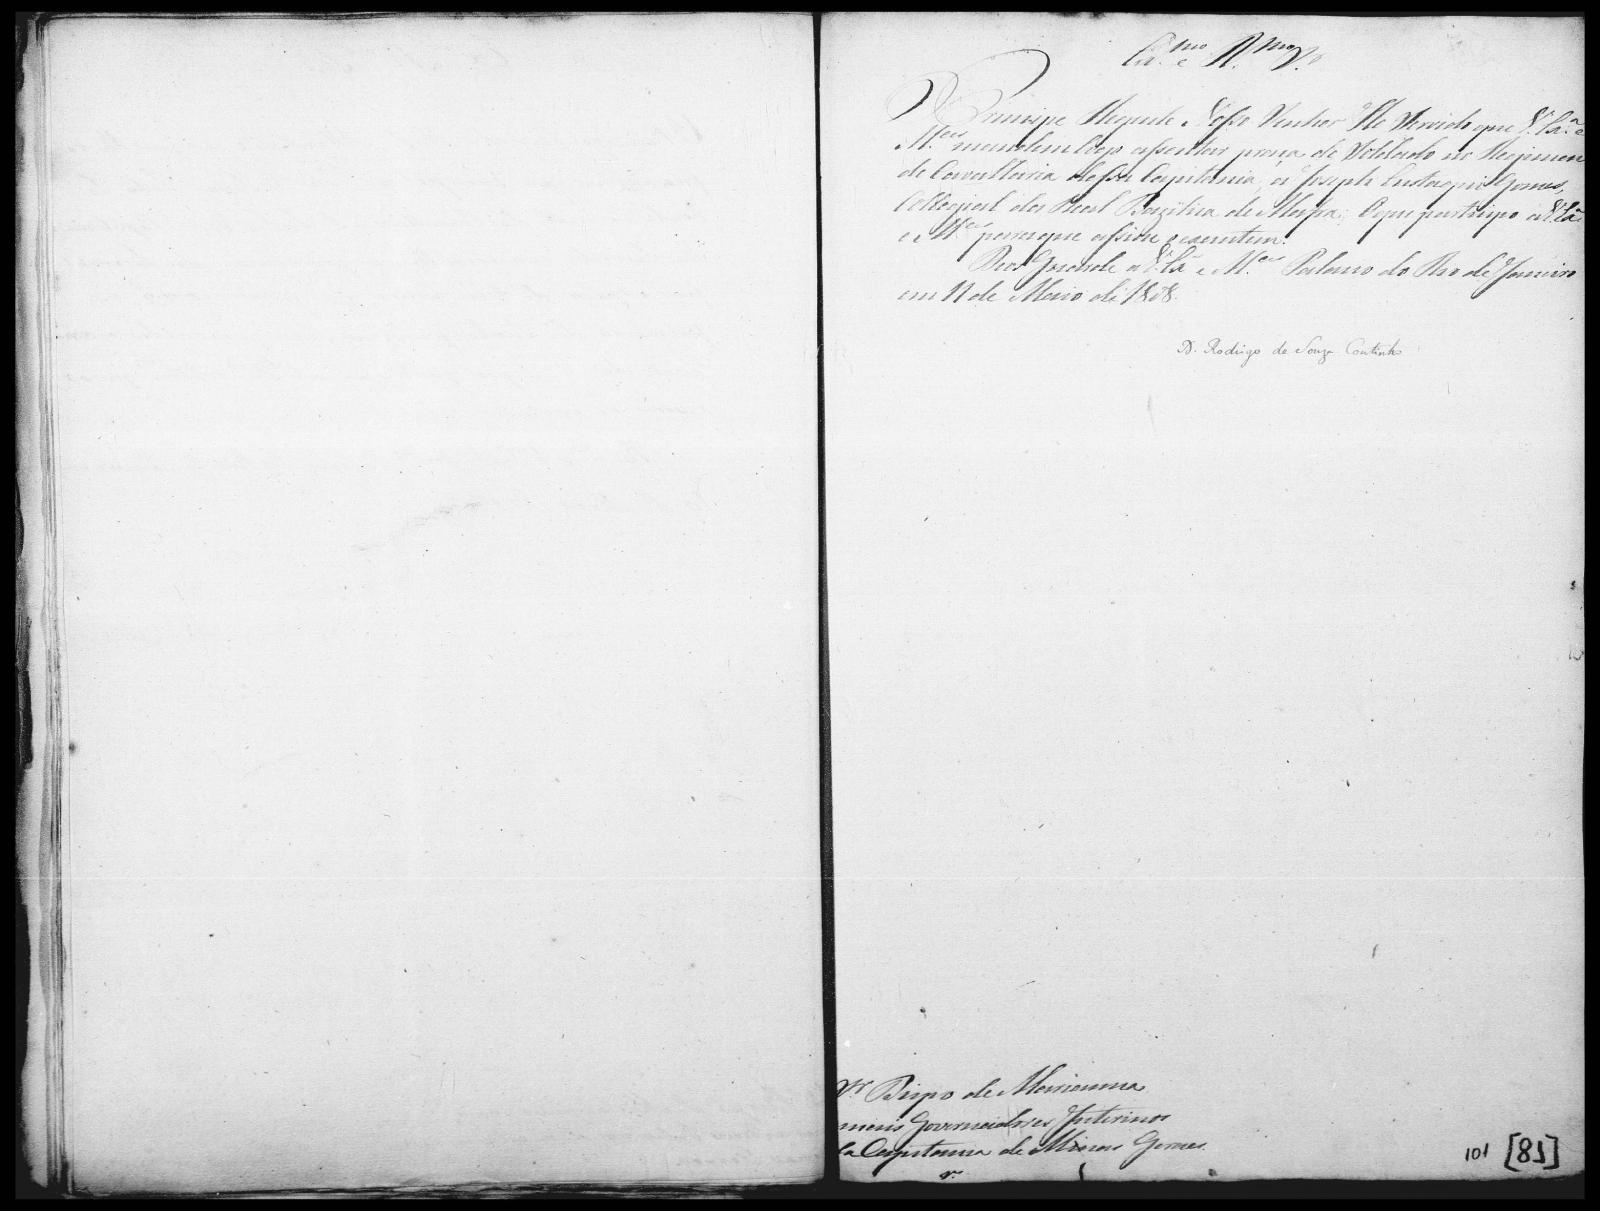 Ex.mo e R.mo S.r
O Principe Regente Nosso Senhor He Servido que V. Ex.a e
M.ces mandem logo assentar praça de Soldado no Regimen
de Cavallaria dessa Capitania, a Joseph Eustaquio Gomes,
Collegial da Real Bazilica de Mafra; O que participo a V. Ex.a
e M.ces para que assim o executem.
Deos Guarde a V. Ex.a e M.ces Palacio do Rio de Janeiro
em 11 de Maio de 1808.
D. Rodrigo de Souza Coutinho
S.r Bispo de Marianna
mais Governadores Interinos
da Capitania de Minas Geraes.
101 [81]